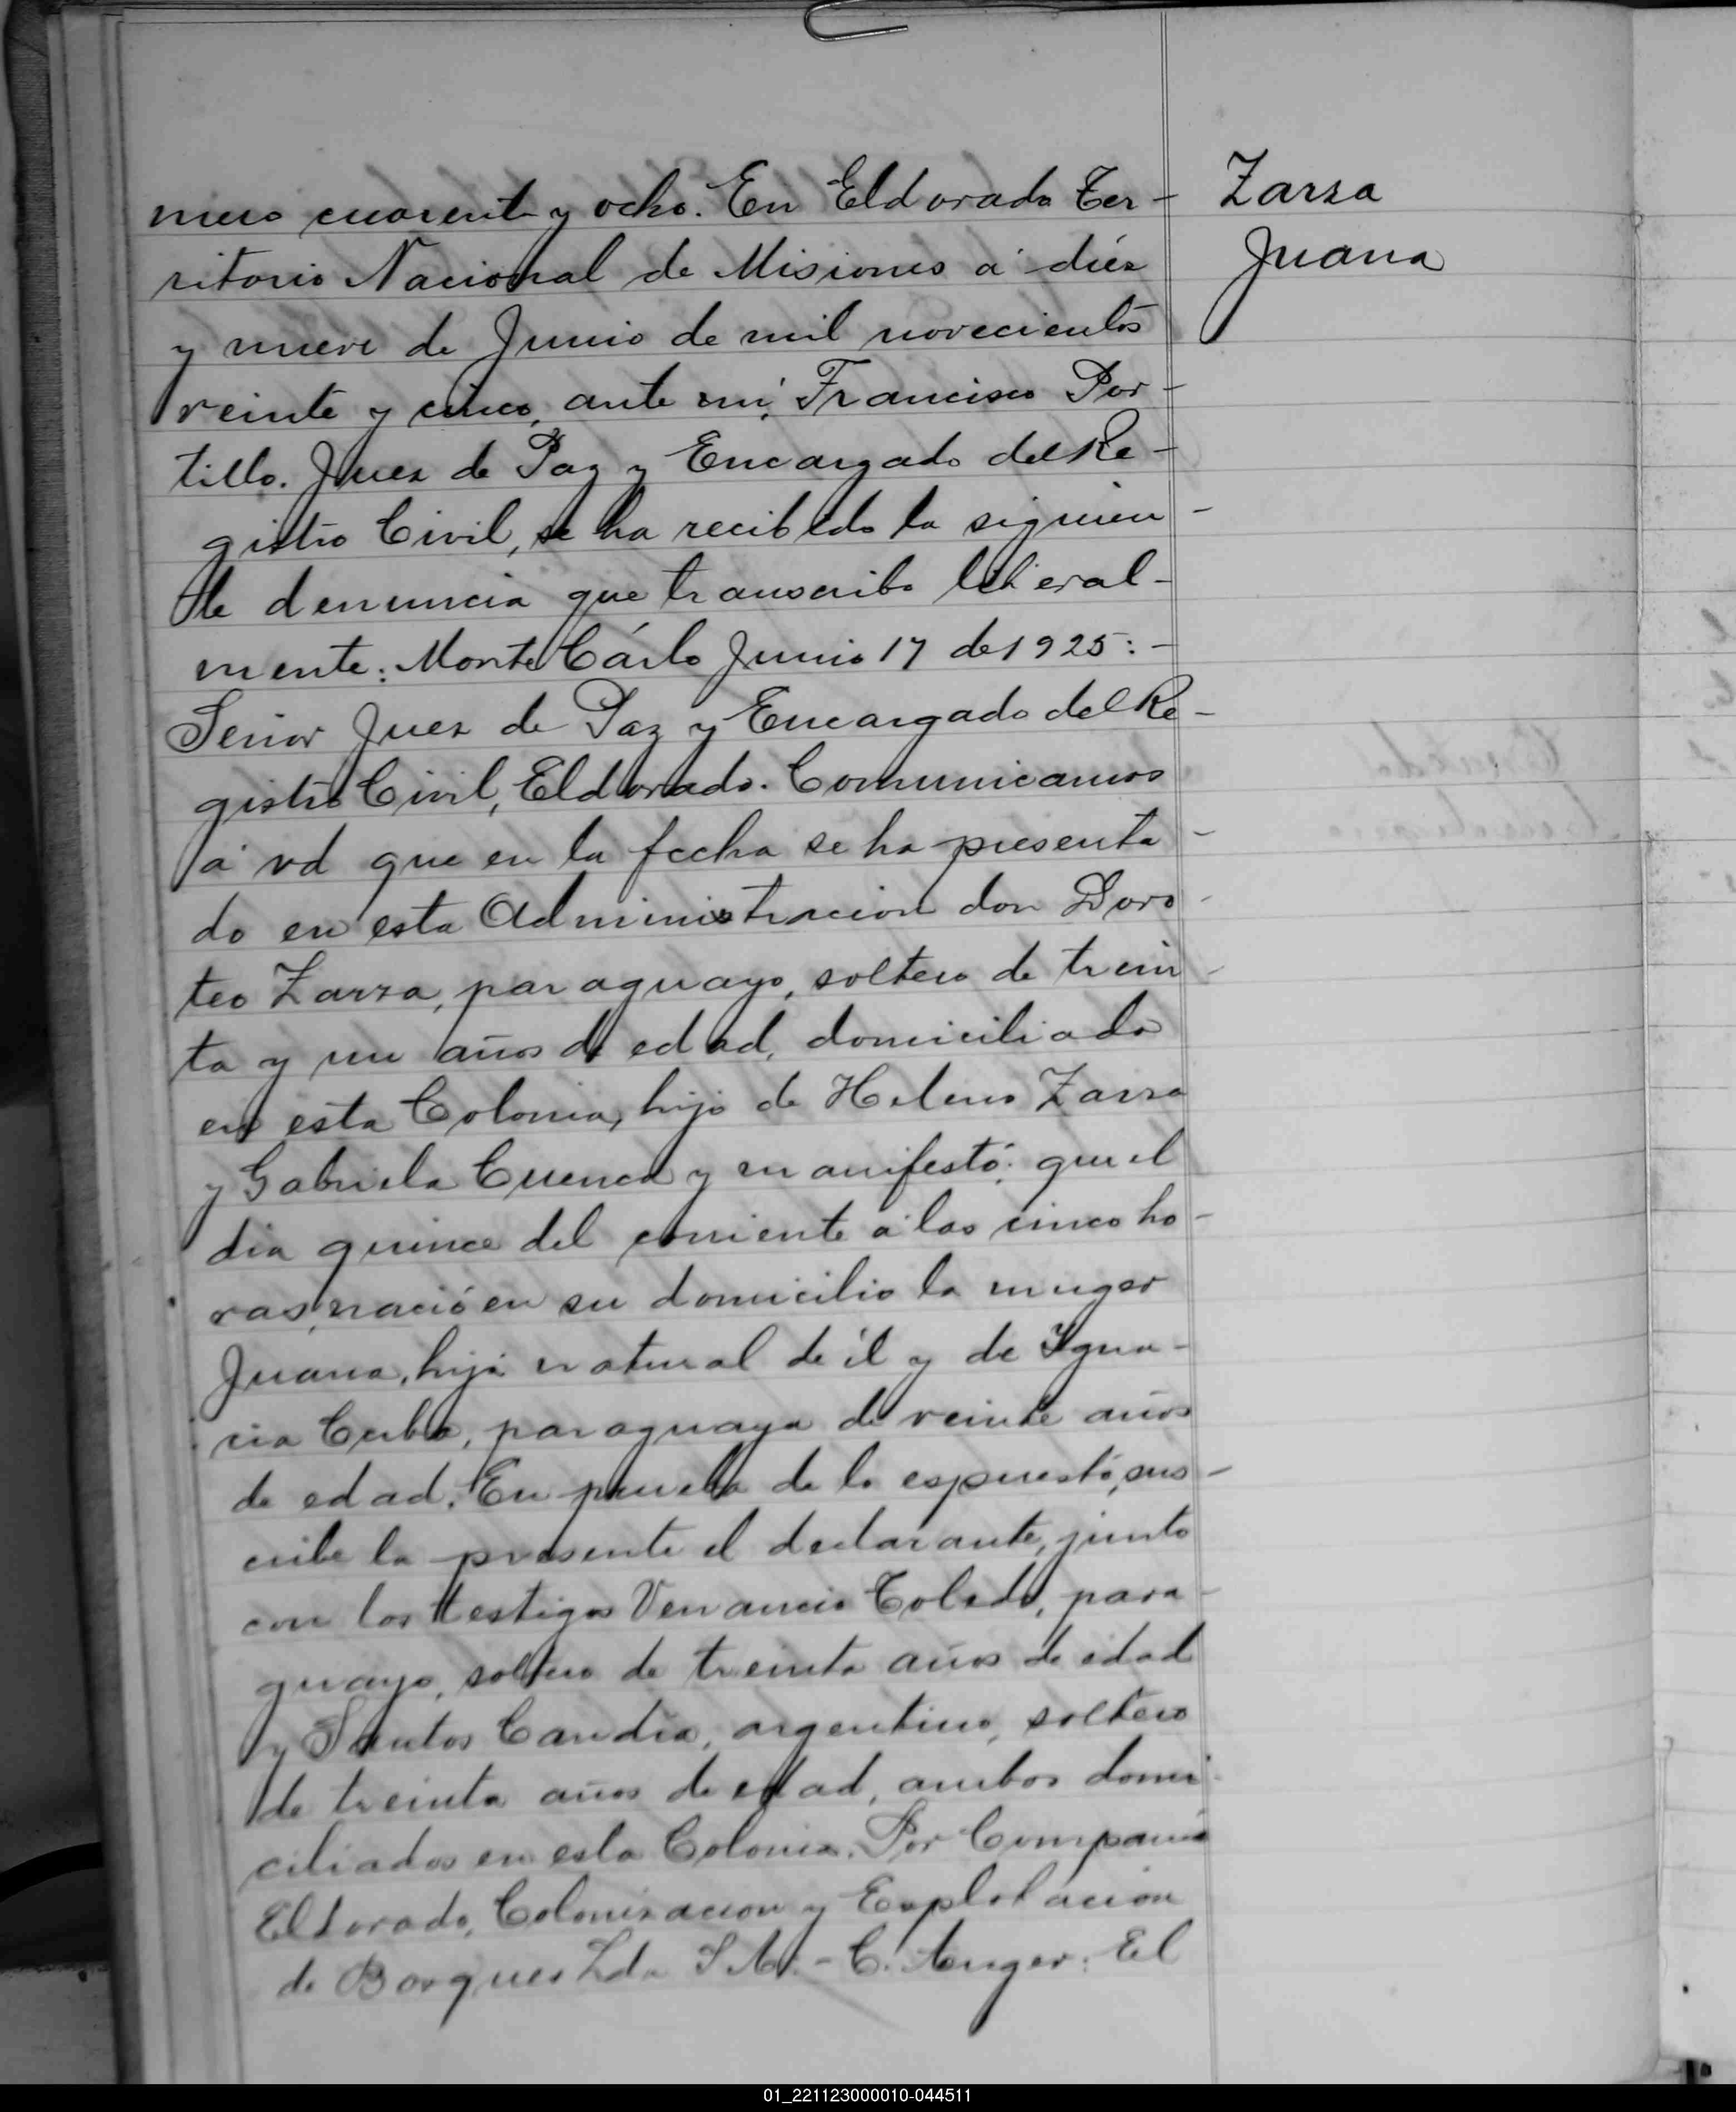 mero cuarenta y ocho. En Eldorado Ter-
ritorio Nacional de Misiones á diéz
y nueve de Junio de mil novecientos
veinte y cinco, ante mi, Francisco Por-
tillo. Juez de Paz y Encargado del Re-
gistro Civil, se ha recibido la siguien-
te denuncia que transcribo literal-
mente: Monte Cárlo Junio 17 de 1925:-
Señor Juez de Paz y Encargado del Re-
gistro Civil, Eldorado. Comunicamos
á vd que en la fecha se ha presenta-
do en esta Administracion don Doro-
teo Zarza, paraguayo, soltero de trein-
ta y un años de edad, domiciliado
en esta Colonia, hijo de Heleno Zarza
y Gabriela Cuenca y manifestó: que el
dia quince del corriente á las cinco ho-
ras, nació en su domicilio la muger
Juana, hija natural de él y de Ygna-
cia, paraguaya de veinte años
de edad. En prueba de lo espuesto, sus-
cribe la presente el declarante, junto
con los testigos Venancio Toledo, para-
guayo, soltero de treinta años de edad
y Santos Candia, argentino, soltero
de treinta años de edad, ambos domi-
ciliados en esta Colonia. Por Compañia
Eldorado, Colonizacion y Explotacion
de Bosques Lda S.A.-C. El
Zarza
Juana
01_221123000010-044511